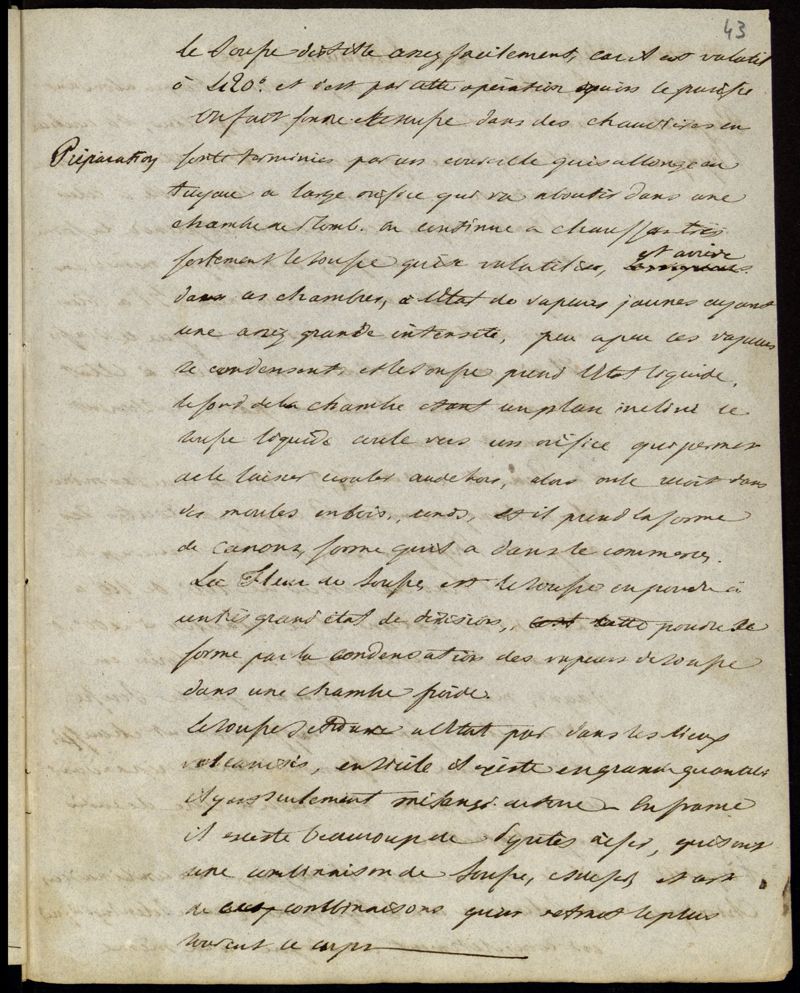 43
le soufre distille assez facilement, car il est volatil
à 420°. et c'est par cette opération qu'on le purifie
On fait fondre le soufre dans des chaudières en
Préparation
fonte terminées par un couvercle qui s'allonge en
tuyau a large orifice qui va aboutir dans une
chambre de Plomb. on continue a chauffer très
fortement le soufre qui se volatilise, et arrive
dans ces chambres, à l'état de vapeurs jaunes ayant
une assez grande intensité, peu a peu ces vapeurs
se condensent, et le soufre prend l'état liquide.
le fond de la chambre étant un plan incliné ce
soufre liquide coule vers un orifice qui permet
de le laisser écouler au dehors, alors on le reçoit dans
des moules en bois, ronds, et il prend la forme
de canons, forme qu'il a dans le commerce.
La Fleur de Soufre, est le soufre en poudre à
un très grand état de division, cest cette poudre se
forme par la condensation des vapeurs de soufre
dans une chambre froide.
le soufre se trouve a l'état pur dans les lieux
volcanisés, en Sicile il existe en grande quantité
il y est seulement mélangé de terre - En france
il existe beaucoup de Pyrites de fer, qui sont
une combinaison de Soufre, et de fer, et c'est
de ces combinaisons qu'on retire le plus
souvent ce corps